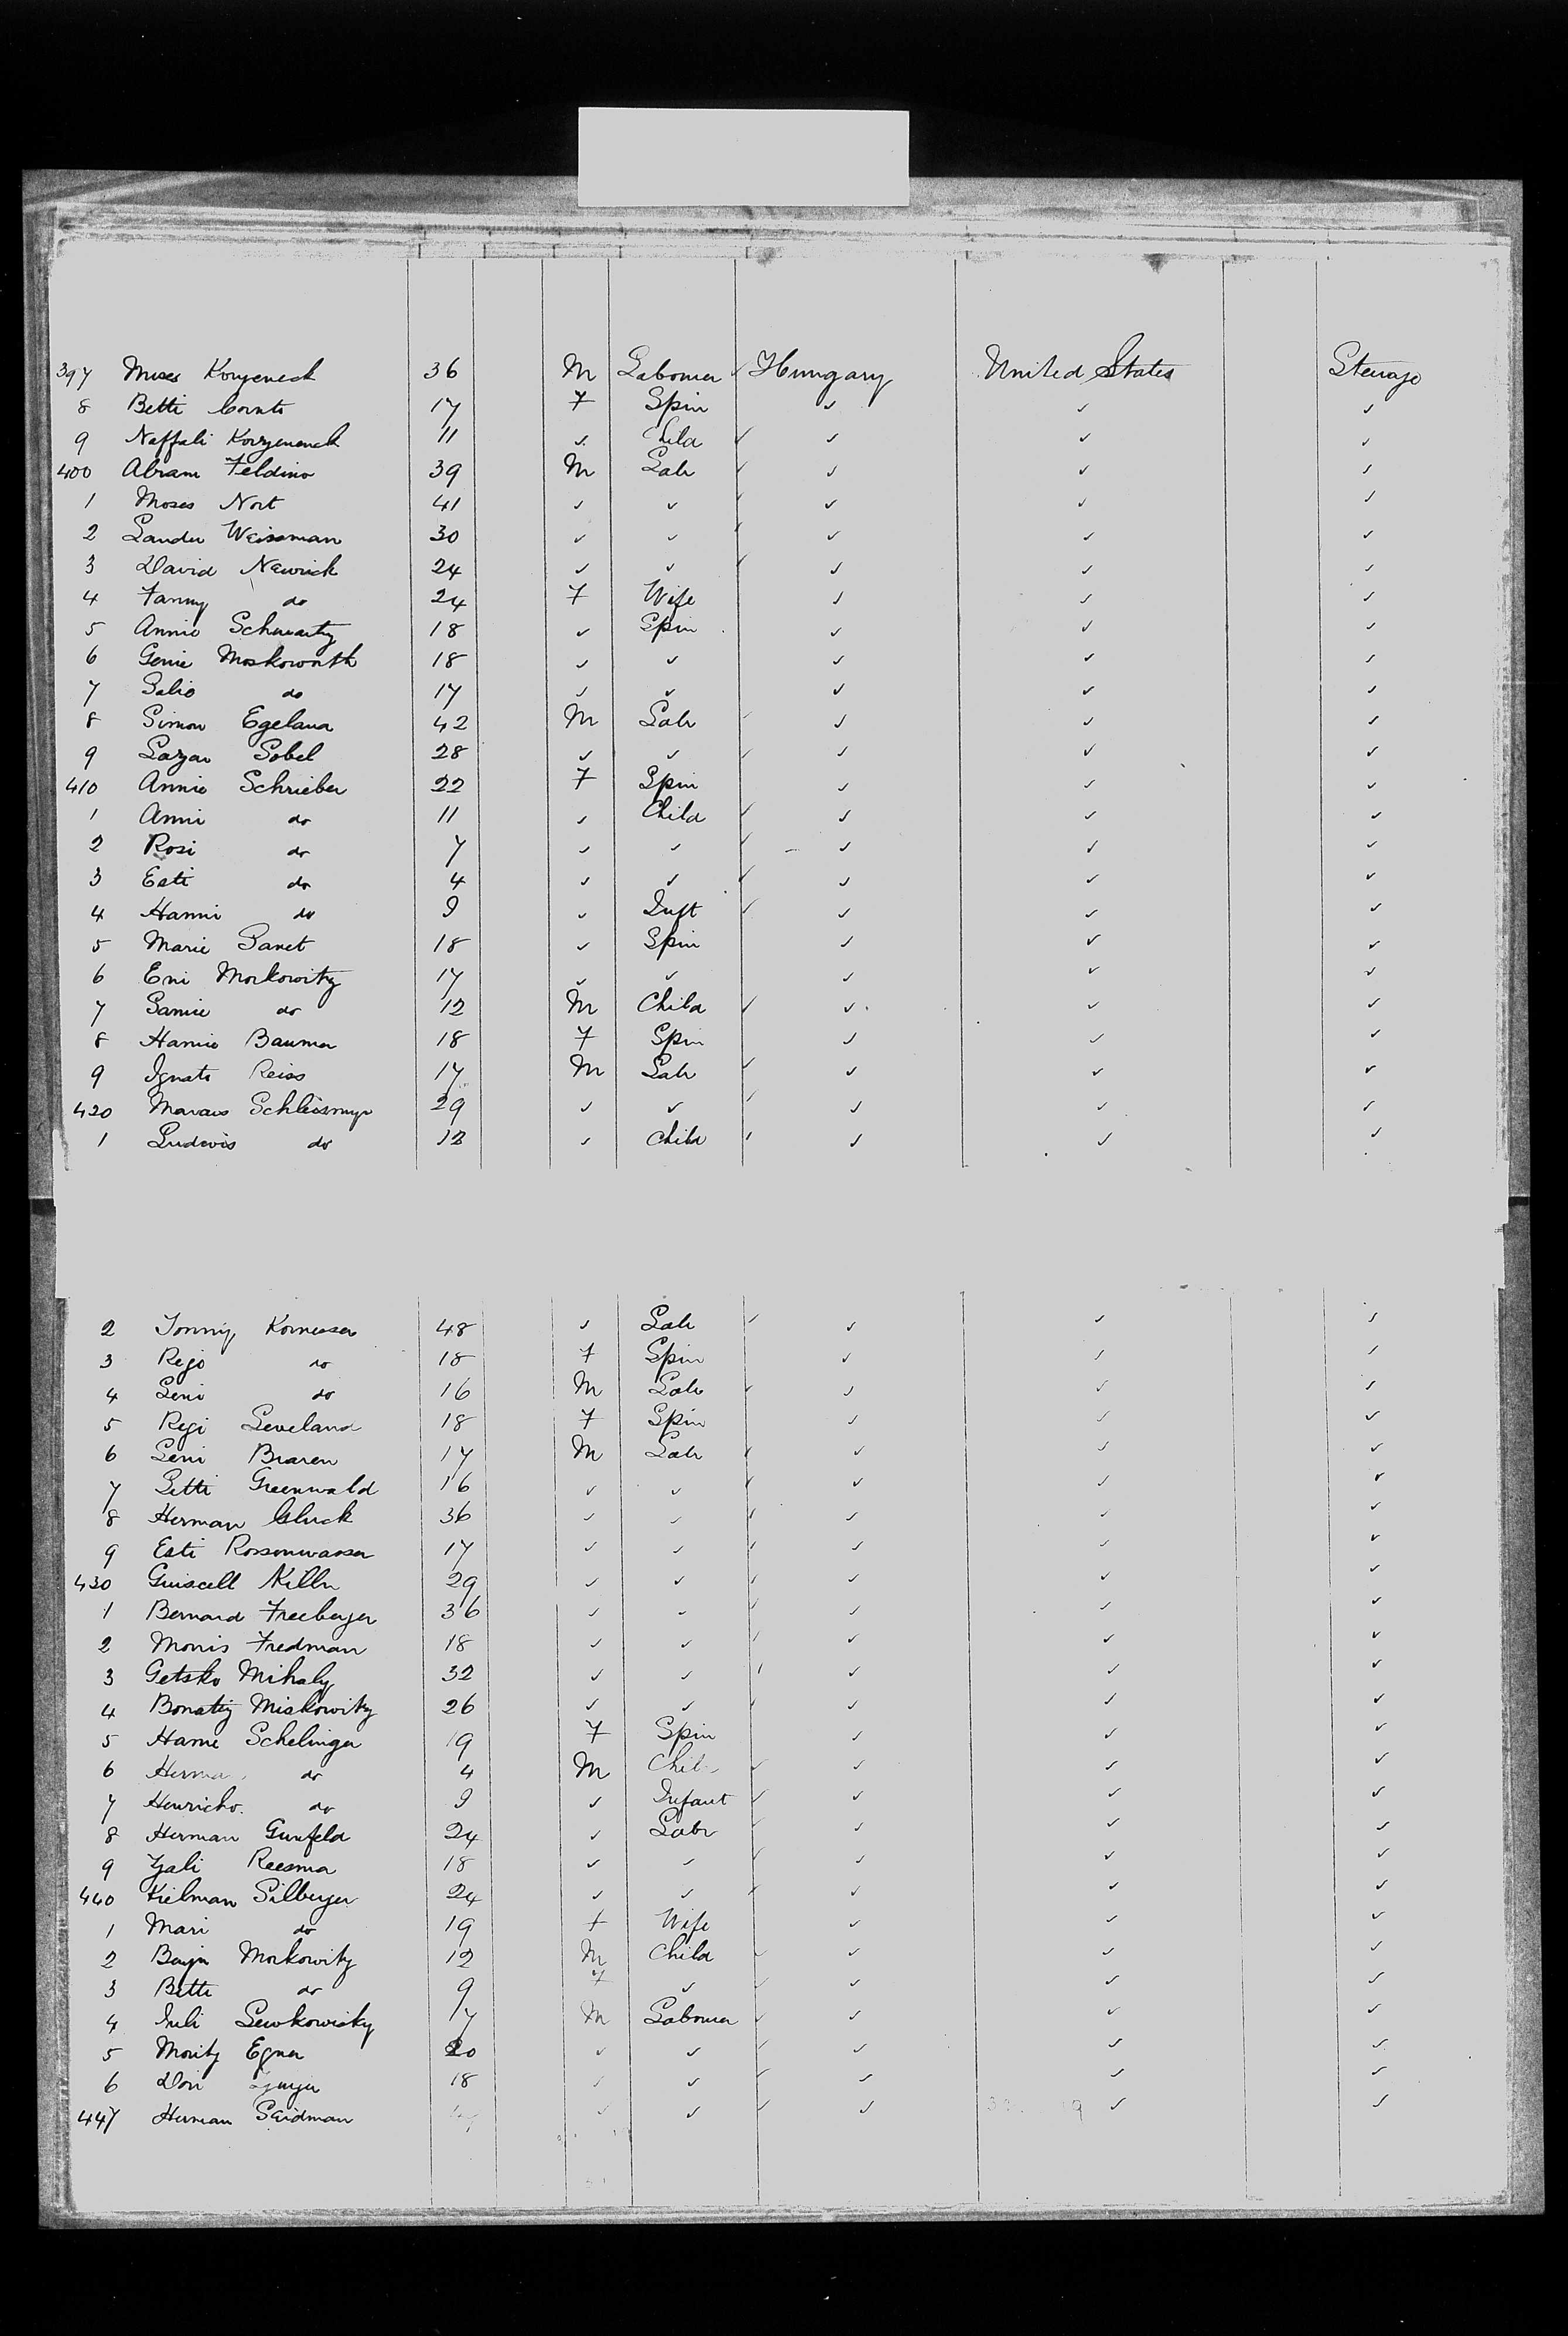 397 Moses Koryeneck 36 M Labourer ✓ Hungary United States Steerage
8 Betti Cornts 17 F Spin ✓ ✓ ✓
9 Naffali Koryeneck 11 ✓ Child ✓ ✓ ✓ ✓
400 Abram Feldino 39 M Lab ✓ ✓ ✓ ✓
1 Moses Nort 41 ✓ ✓ ✓ ✓ ✓ ✓
2 Sander Weissman 30 ✓ ✓ ✓ ✓ ✓ ✓
3 David Newrick 24 ✓ ✓ ✓ ✓ ✓ ✓
4 Fanny do 24 F Wife ✓ ✓ ✓
5 Annie Schwartz 18 ✓ Spin ✓ ✓ ✓
6 Genie Moskowith 18 ✓ ✓ ✓ ✓ ✓
7 Salio do 17 ✓ ✓ ✓ ✓ ✓
8 Simon Egelana 42 M Lab ✓ ✓ ✓ ✓
9 Lazar Sobel 28 ✓ ✓ ✓ ✓ ✓ ✓
410 Annie Schrieber 22 F Spin ✓ ✓ ✓
1 Anni do 11 ✓ Child ✓ ✓ ✓ ✓
2 Rosi do 7 ✓ ✓ ✓ ✓ ✓ ✓
3 Esti do 4 ✓ ✓ ✓ ✓ ✓ ✓
4 Hanni do 9 ✓ Inft ✓ ✓ ✓ ✓
5 Marie Ganet 18 ✓ Spin ✓ ✓ ✓
6 Eni Morkowitz 17 ✓ ✓ ✓ ✓ ✓
7 Samie do 12 M Child ✓ ✓ ✓ ✓
8 Hanie Bauma 18 F Spin ✓ ✓ ✓
9 Ignats Reiss 17 M Lab ✓ ✓ ✓ ✓
420 Schleismyr 29 ✓ ✓ ✓ ✓ ✓ ✓
1 Ludevis do 12 ✓ Child ✓ ✓ ✓ ✓
2 Kornesser 48 ✓ Lab ✓ ✓ ✓ ✓
3 Rejo do 18 F Spin ✓ ✓ ✓
4 Leni do 16 M Lab ✓ ✓ ✓ ✓
5 Regi Leveland 18 F Spin ✓ ✓ ✓
6 Leni Braren 17 M Lab ✓ ✓ ✓ ✓
7 Setti Greenwald 16 ✓ ✓ ✓ ✓ ✓ ✓
8 Herman Gluck 36 ✓ ✓ ✓ ✓ ✓ ✓
9 Esti Rossenwasser 17 ✓ ✓ ✓ ✓ ✓ ✓
430 Guiscell Killn 29 ✓ ✓ ✓ ✓ ✓ ✓
1 Bernard Freeberger 36 ✓ ✓ ✓ ✓ ✓ ✓
2 Morris Fredman 18 ✓ ✓ ✓ ✓ ✓ ✓
3 Getsko Mihaly 32 ✓ ✓ ✓ ✓ ✓ ✓
4 Bonatiz Miskowitz 26 ✓ ✓ ✓ ✓ ✓ ✓
5 Hanie Schelinger 19 F Spin ✓ ✓ ✓
6 Herma do 4 M Child ✓ ✓ ✓ ✓
7 Henricho do 9 ✓ Infant ✓ ✓ ✓ ✓
8 Herman Gunfeld 24 ✓ Labr ✓ ✓ ✓ ✓
9 Zali Reesma 18 ✓ ✓ ✓ ✓ ✓ ✓
440 Kielman Silberger 24 ✓ ✓ ✓ ✓ ✓ ✓
1 Mari do 19 F Wife ✓ ✓ ✓
2 Morkowitz 12 M Child ✓ ✓ ✓ ✓
3 Betti do 9 F ✓ ✓ ✓ ✓ ✓
4 Juli Lewkowisky 17 M Labourer ✓ ✓ ✓ ✓
5 Moritz Egner 20 ✓ ✓ ✓ ✓ ✓ ✓
6 Dori 18 ✓ ✓ ✓ ✓ ✓ ✓
447 Herman Seidman ✓ ✓ ✓ ✓ ✓ ✓